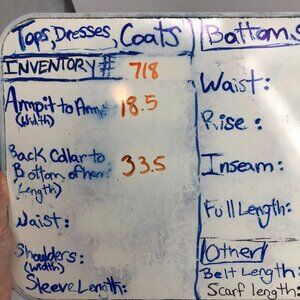 Tops, Dresses, Coats
INVENTORY # 718
Ampit to Arm: 18.5
(Width)
Back Collar to
Bottom of hem: 33.5
(Length)
Waist:
Shoulders:
(Width)
Sleeve Length:
Bottom
Waist:
Rise:
Inseam:
Full Length:
Other
Belt Length:
Scarf length: